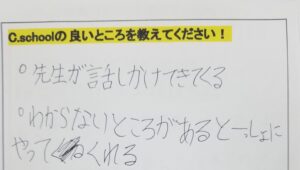 C.schoolの良いところを教えてください！
○先生が話しかけてきてくる
○わからないところがあるといっしょに
やってくれる